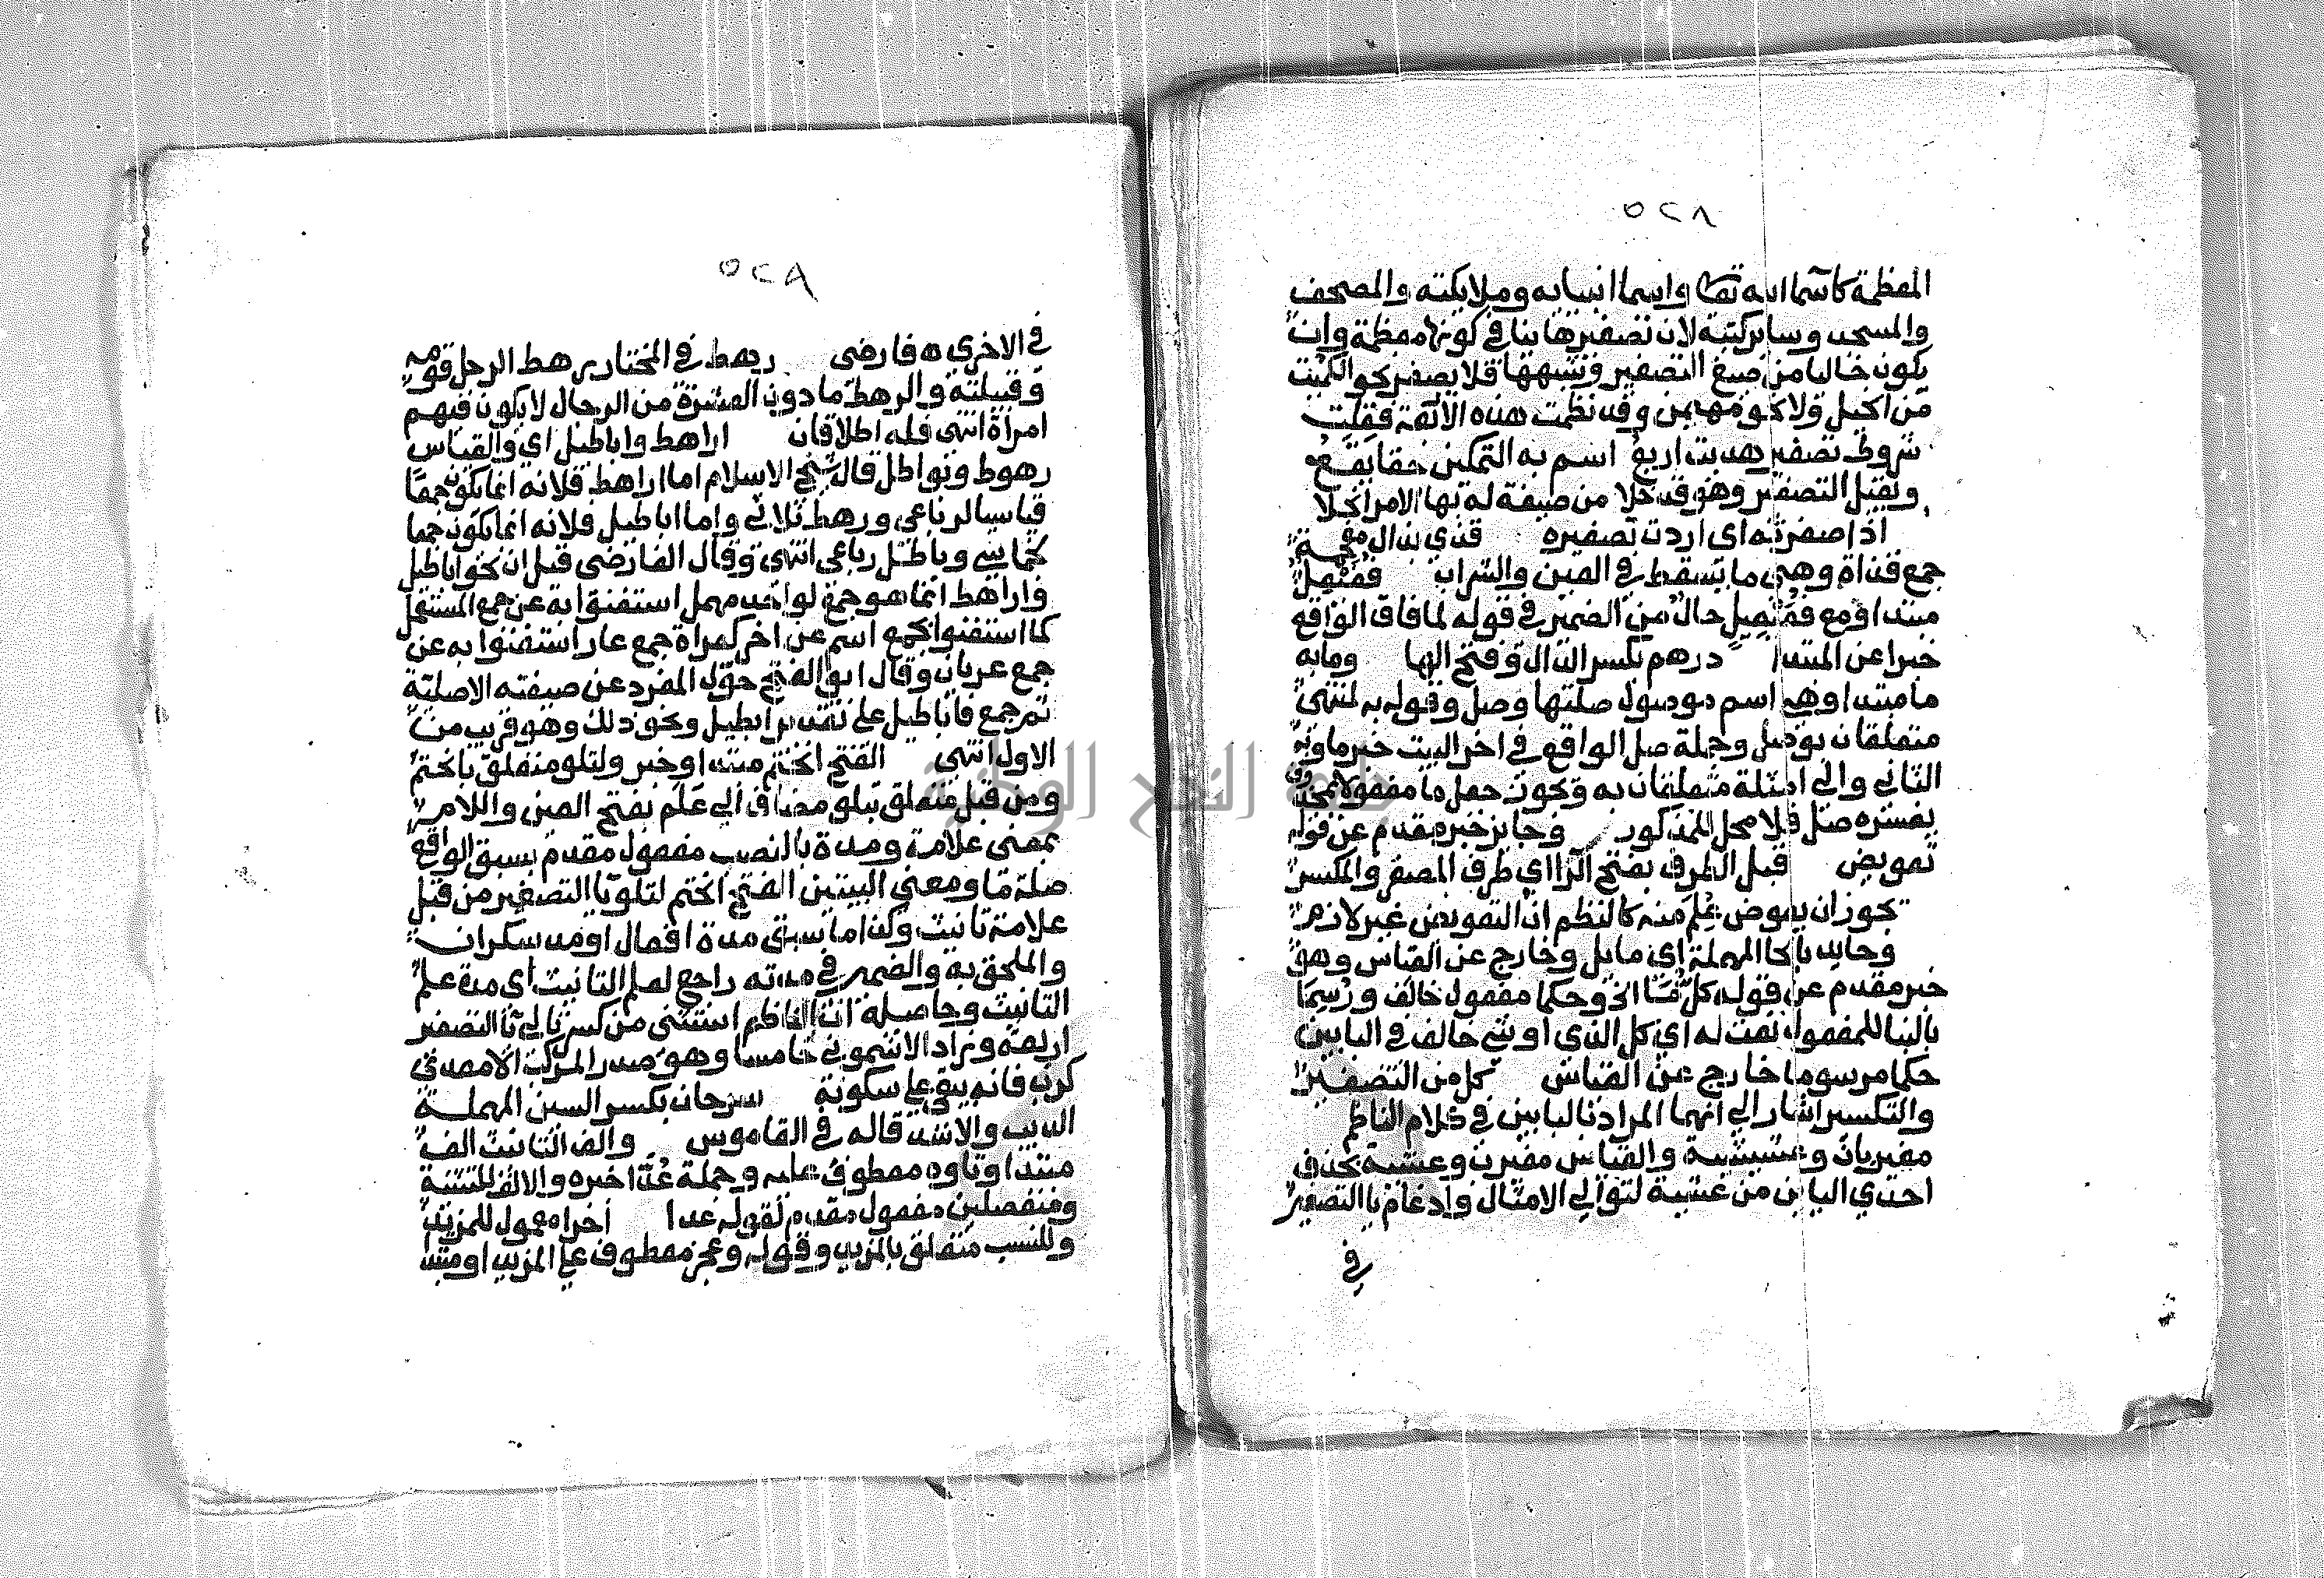 ٥٢٨
المعظمة كاسما الله تعالى واسما انبيايه وملايكته والمصحف
والمسجد وساير كتبه لان تصغيرها ينافي كونها معظمة وان
يكون خاليا من صيغ التصغير وشبهها فلا يصغر نحو الكميت
من الخيل ولا نحو مهيمن وقد نظمت هذه الاربعة فقلت
شروط تصغير بعدت اربع اسم به التمكين حقا يقع
ويقبل التصغير وهو قد خلا من صيغة له بها الامر انجلا
اذا صغرته اي اردت تصغيره قذي بذال معجمة
جمع قذاة وهي ما يسقط في العين والشراب فعيعل
مبتدا ومع فعيعيل حال من الضمير في قوله لما فاق الواقع
خبرا عن المبتدا درهم بكسر الدال وفتح الها وما به
ما مبتدا وهي اسم موصول صلتها وصل وقوله به لمنتهى
متعلقان بوصل وجملة صل الواقع في اخر البيت خبر ما وبه
الثاني والى امثلة متعلقان به ويجوز جعل ما مفعولا لمحذوف
يفسره صل فلا محل للمذكور وجايز خبر مقدم عن قوله
تعويض قبل الطرف بفتح الرا اي طرف المصغر والمكسر
يجوز ان يعوض علم منه كالنظم ان التعويض غير لازم
وحايد بالحا المهملة اي مايل وخارج عن القياس وهو
خبر مقدم عن قوله كل ما الخ وحكما مفعول خالف ورسما
بالبنا للمفعول نعت له اي كل الذي او شي خالف في البابين
حكما مرسوما خارج عن القياس كل من التصغير
والتكسير اشار الى انهما المراد بالبابين في كلام الناظم
مغيربان وعشيشية والقياس مغيرب وعشية بحذف
احدى الياين من عشيية لتوالي الامثال وادغام يا التصغير
في
٥٢٩
في الاخرى ه فارضي رهط في المختار رهط الرجل قومه
وقبيلته والرهط ما دون العشرة من الرجال لا يكون فيهم
امراة انتهى فله اطلاقان اراهط واباطيل اي والقياس
رهوط وبواطل قال شيخ الاسلام اما اراهط فلانه انما يكون جمعا
قياسيا لرباعي ورهط ثلاثي واما اباطيل فلانه انما يكون جمعا
لخماسي وباطل رباعي انتهى وقال الفارضي قيل ان نحو اباطيل
واراهط انما هو جمع لواحد مهمل استغنوا به عن جمع المستعمل
كما استغنوا بجمع اسم عن اخر كعراة جمع عار استغنوا به عن
جمع عريان وقال ابو الفتح حول المفرد عن صيغته الاصلية
ثم جمع فاباطيل على تقدير ابطيل ونحو ذلك وهو قريب من
الاول انتهى الفتح انحتم مبتدا وخبر ولتلو متعلق بانحتم
ومن قبل متعلق بتلو مضاف الى علم بفتح العين واللام
بمعنى علامة ومدة بالنصب مفعول مقدم بسبق الواقع
صلة ما ومعنى البيتين الفتح انحتم لتلو يا التصغير من قبل
علامة تانيث وكذا ما سبق مدة افعال او مد سكران
والملحق به والضمير في مدته راجع لعلم التانيث اي مدة علم
التانيث وحاصله ان الناظم استثنى من كسر تالي يا التصغير
اربعة وزاد الاشموني خامسا وهو صدر المركب كالامعدي
كرب فانه يبقى على سكونه سرحان بكسر السين المهملة
الذيب والاسد قاله في القاموس والف التانيث الف
مبتدا وتاوه معطوف عليه وجملة عدا خبره والالف للتثنية
ومنفصلين مفعول مقدم لقوله عدا اخرا معمول للمزيد
وللنسب متعلق بالمزيد وقوله وعجز معطوف على المزيد او مبتد